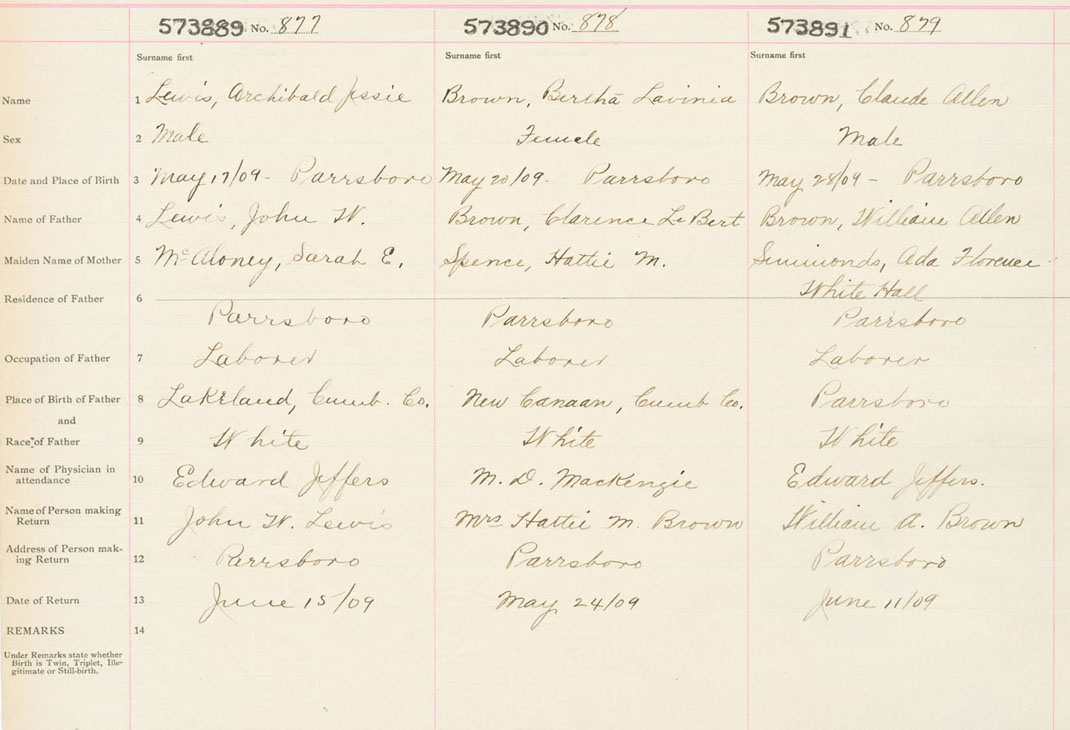 573889 No. 877 573890 No. 878 573891 No. 879
Surname first Surname first Surname first
Name 1 Lewis, Archibald Jessie Brown, Bertha Lavinia Brown, Claude Allen
Sex 2 Male Female Male
Date and Place of Birth 3 May 17/09 - Parrsboro May 20/09 - Parrsboro May 28/09 - Parrsboro
Name of Father 4 Lewis, John W. Brown, Clarence LeBert Brown, William Allen
Maiden Name of Mother 5 McAloney, Sarah E. Spence, Hattie M. Simmonds, Ada Florence
White Hall
Residence of Father 6
Parrsboro Parrsboro Parrsboro
Occupation of Father 7 Laborer Laborer Laborer
Place of Birth of Father 8 Lakeland, Cumb. Co. New Canaan, Cumb Co. Parrsboro
and
Race of Father 9 White White White
Name of Physician in
attendance 10 Edward Jeffers M. D. MacKenzie Edward Jeffers.
Name of Person making
Return 11 John W. Lewis Mrs Hattie M. Brown William A. Brown
Address of Person mak-
ing Return 12 Parrsboro Parrsboro Parrsboro
Date of Return 13 June 15/09 May 24/09 June 11/09
REMARKS 14
Under Remarks state whether
Birth is Twin, Triplet, Ille-
gitimate or Still-birth.